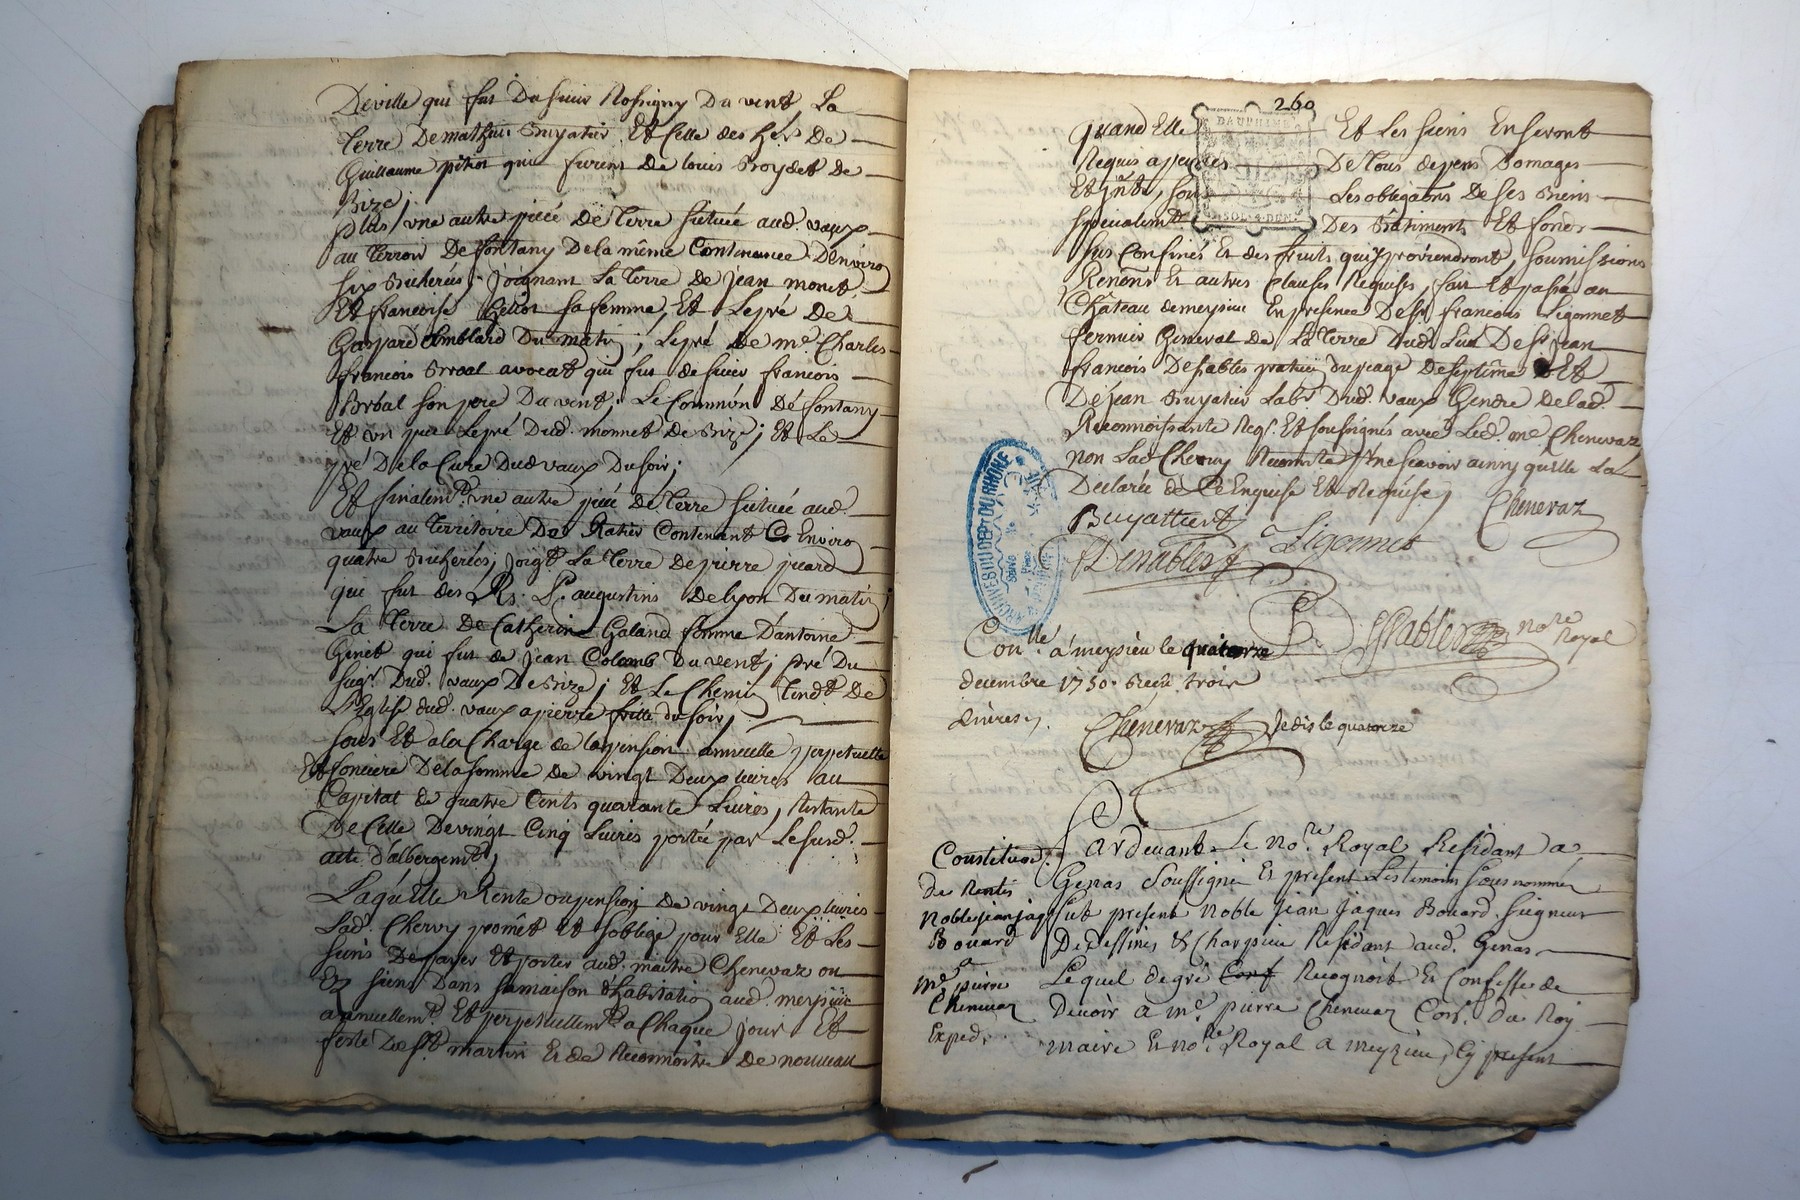 Deville qui fut du sieur Rossigny du vent La
Terre De mathieu Buyatier Et Celle des h.rs De
Guillaume pitiot qui furent de louis Broydet de
Bize;
plus une autre piéce de Terre scituée aud. vaux
au terroir De fontany De la même Contenance D'environ
six Bicherées, joignant La Terre de jean monet
Et francoise Gellot sa femme, Et Le pré De
Gaspard Amblard Du matin; Le pré de me. Charles
francois Broal avocat qui fut de sieur francois
Broal son pere Du vent; Le Commun De fontany
Et un peu Le pré Dud. monnet de Bize; Et Le
pré De la Cure Dud vaux Du soir;
Et finalemt. une autre piéce de Terre scituée aud.
vaux au territoire Des Ratier Contenant Environ
quatre Bicherées, joigt. La Terre de pierre picard
qui fut des Rs. Ps. augustins de lyon Du matin;
La Terre de Catherine Galand femme D'antoine
Ginet qui fut de jean Colomb Du vent; pré Du
seigr. Dud. vaux De Bize; Et Le Chemin Tendt. de
L'Eglise dud. vaux a pierre fritte du soir;
sous Et a la Charge de la pension annuelle perpetuelle
Et fonciere De la somme de vingt Deux livres au
Capital de quatre Cents quarante Livres, Restante
De Celle De vingt Cinq Livres portée par Le susd.
acte d'albergemt.;
Laquelle Rente ou pension de vingt Deux livres
Lad. Chervy promêt Et s'oblige pour Elle Et Les
siens De payer Et porter aud. maitre Chenevaz ou
Es siens Dans sa maison d'habitation aud. meysieu
annuellemt. Et perpetuellemt. a Chaque jour Et
feste De St. martin Et de Reconnoitre de nouveau
260
DAUPHINE
SOL. 4. DEN.
quand Elle Et Les siens En seront
Requis a peines De Tous depens Domages
Et jnts., sous Les obligaons De ses Biens
specialemt. Des Bâtiments Et fonds
sus Confinés Et des fruits qui y proviendront, soumissions
Renons Et autres Clauses Requises, fait Et passé au
Château de meysieu En presence De Sr. francois Ligonnet
fermier General de La Terre Dud. Lieu De Sr. jean
francois Desables praticien du peage De septême Et
De jean Buyatier Labr. Dud. vaux Gendre de lad.
Reconnoissante Reqs. Et soussignés avec Led. me. Chenevaz
non Lad Chervy Reconnte. pr. ne scavoir ainsy qu'elle La
Declaré de Ce Enquise Et Requise;
Chenevaz
Buyattiert
Ligonnet
Desables
Desables nore Royal
ARCHIVES DU DEPT DU RHONE
Conllé. à meysieu le quatorze
decembre 1750. Reçu trois
livres
Chenevaz Je dis le quatorze
Constituon.
de Rentes
Noble jean jaqs
Bouard
a
me. pierre
Chenevaz
Exped.
Pardevant Le nore. Royal Residant a
Genas soussigné Et present Les temoins sous nommés
fut present Noble jean jaques Bouard seigneur
De dessines & Charpieu Residant aud. Genas
Lequel de gré Conf Recognoit Et Confesse de
Devoir a me. pierre Chenevaz Cons. du Roy
maire Et nore. Royal a meyzieu, Cy present